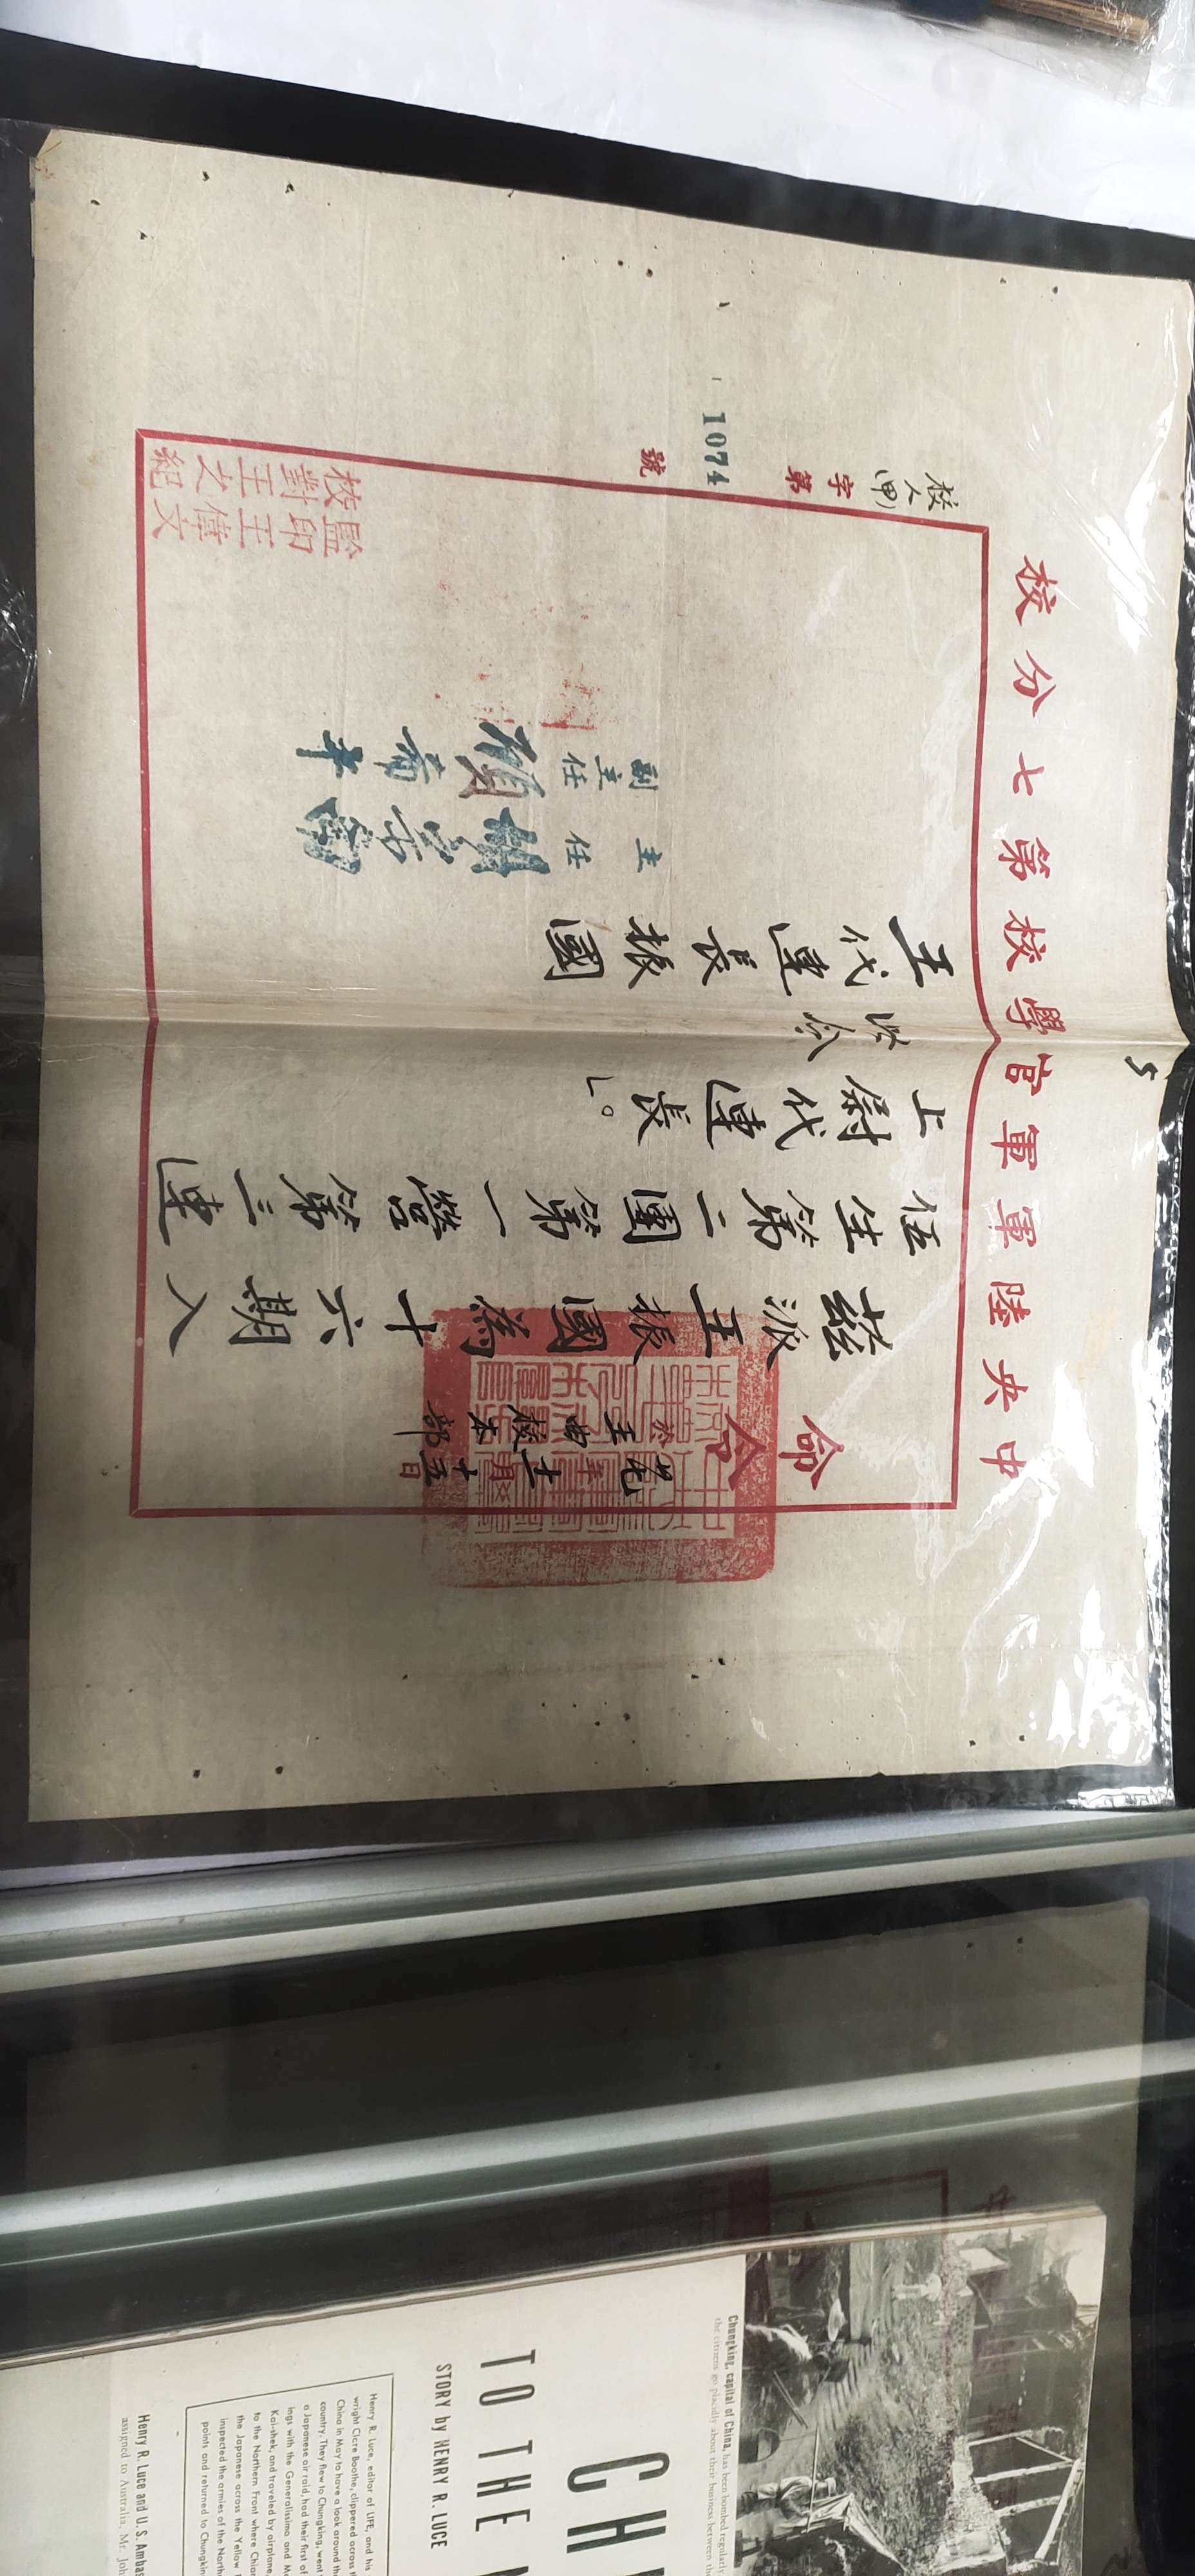 中央陸軍軍官學校第七分校
5
命令
廿九年十一月十五日
於王曲校本部
茲派王振國為十六期入
伍生第二團第一營第三連
上尉代連長」。
此令
王代連長振國
主任 胡宗南
副主任 顧希平
監印王偉文
校對王之紀
校人(甲)字第1074號
Chungking, capital of China, has been bombed regularly
the citizens go placidly about their business between th
CH
TO THE
STORY by HENRY R. LUCE
Henry R. Luce, editor of LIFE, and his
wright Clare Boothe, clippered across t
China in May to have a look around th
country. They flew to Chungking, went
a Japanese air raid, had their first of
ings with the Generalissimo and M
Kai-shek, and traveled by airplane,
to the Northern Front where Chian
the Japanese across the Yellow
inspected the armies of the North
points and returned to Chungkin
Henry R. Luce and U. S. Ambas
assigned to Australia, Mr. Joh